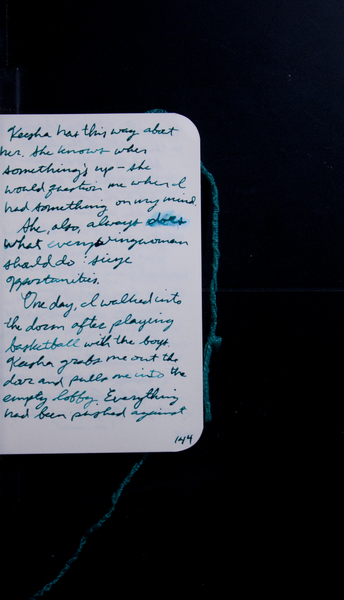 Keesha has this way about
her. She knows when
something's up - she
would question me when I
had something on my mind.
She, also, always does
what every wingwoman
should do: siege
opportunities.
One day, I walked into
the dorm after playing
basketball with the boys.
Keesha grabs me out the
door and pulls me into the
empty lobby. Everything
had been pushed against
144